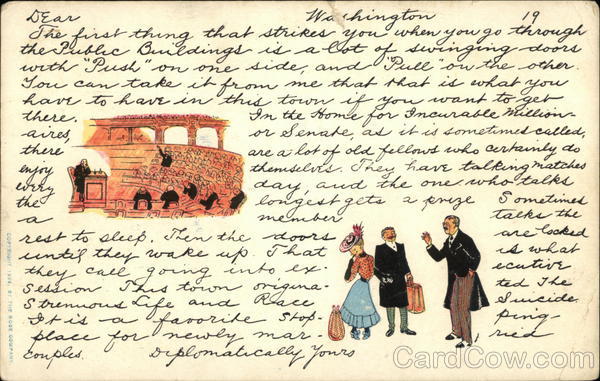 Dear Washington 19
The first thing that strikes you when you go through
the Public Buildings is a lot of swinging doors
with "Push" on one side, and "Pull" on the other.
You can take it from me that that is what you
have to have in this town if you want to get
there. In the Home for Incurable Million-
aires, or Senate, as it is sometimes called,
there are a lot of old fellows who certainly do
enjoy themselves. They have talking matches
every day, and the one who talks
the longest gets a prize Sometimes
a member talks the
rest to sleep. Then the doors are locked
until they wake up. That is what
they call going into ex- ecutive
Session This town origina- ted The
Strenuous Life and Race Suicide
It is a favorite Stop- ping-
place for newly mar- ried
couples. Diplomatically Yours
COPYRIGHT BY THE ROSE COMPANY
CardCow.com